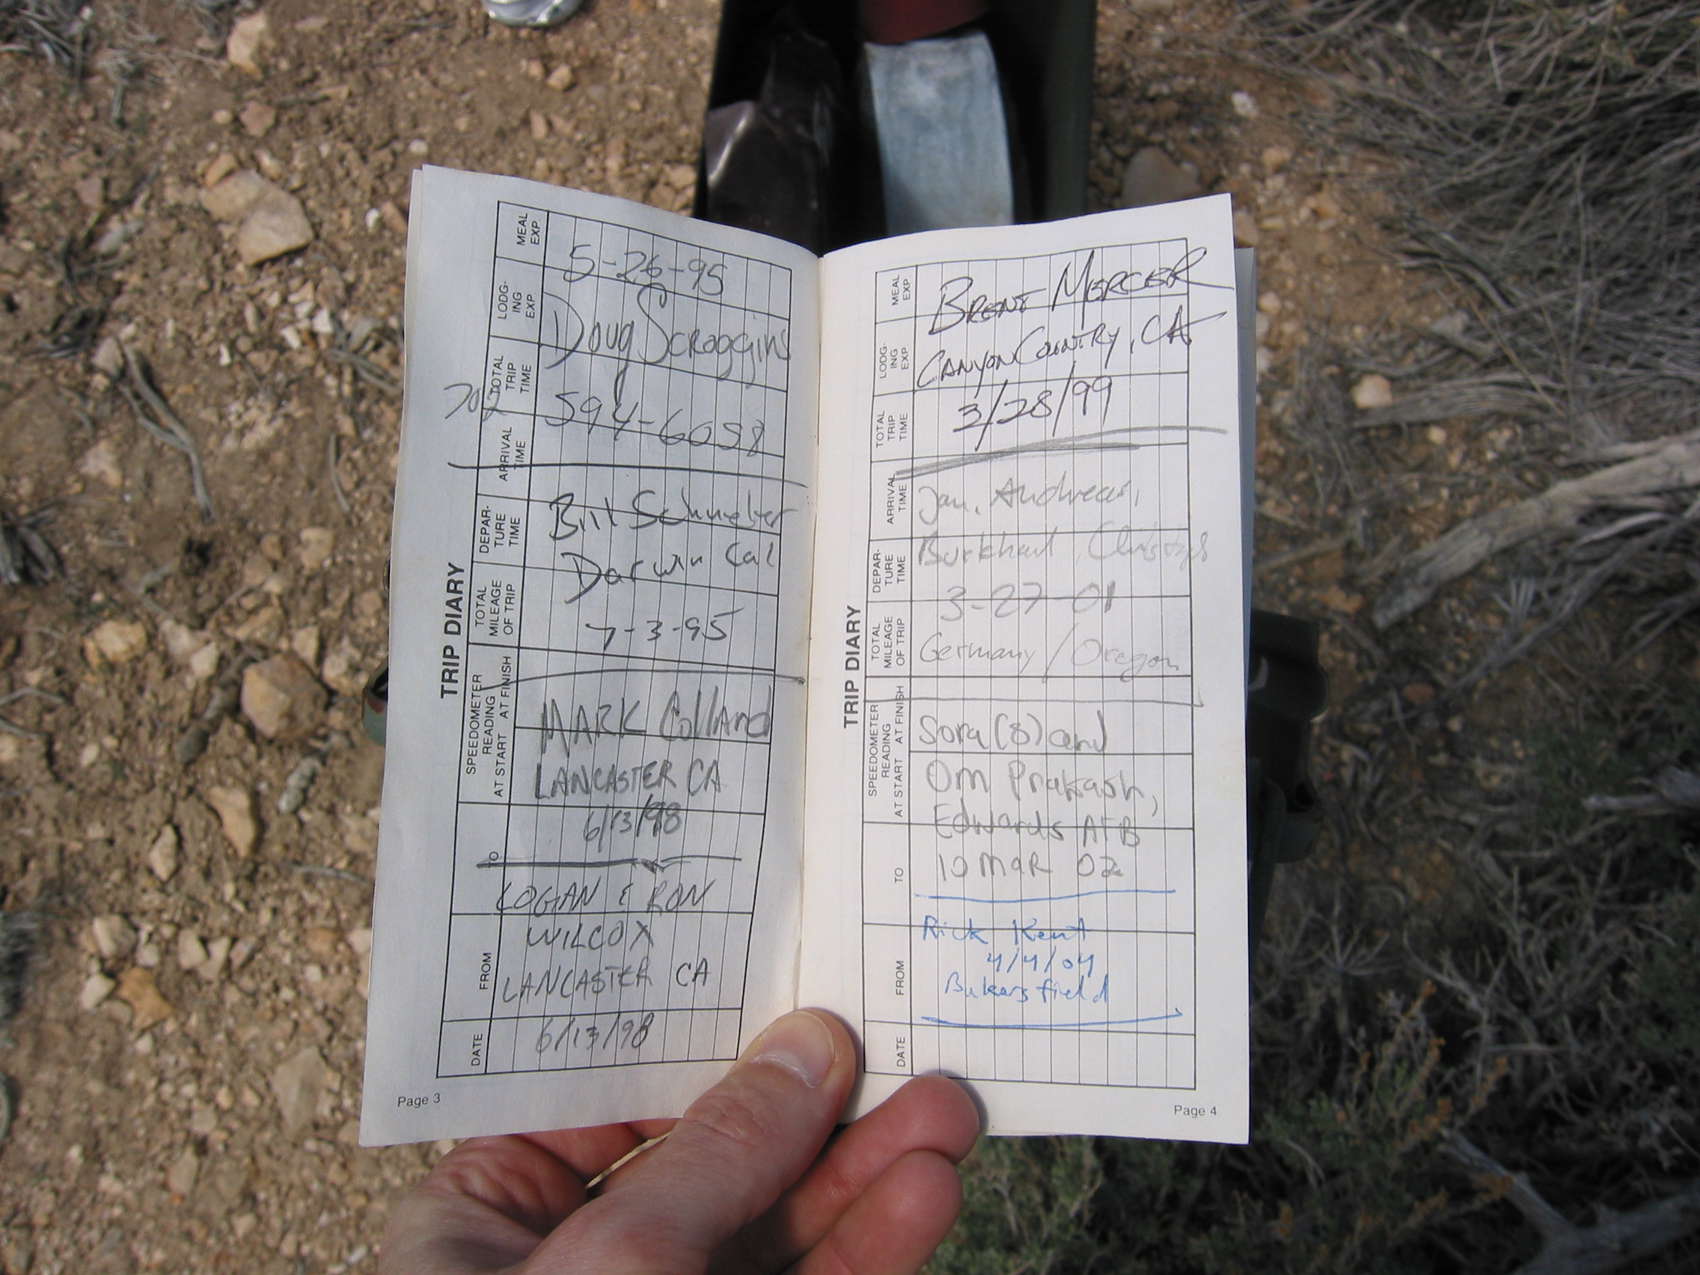 TRIP DIARY
MEAL EXP
LODG-
ING
EXP
TOTAL
TRIP
TIME
ARRIVAL
TIME
DEPAR-
TURE
TIME
TOTAL
MILEAGE
OF TRIP
SPEEDOMETER
READING
AT START AT FINISH
TO
FROM
DATE
5-26-95
Doug Scroggins
702 594-6058
Bill
Darwin Cal
7-3-95
MARK Colland
LANCASTER CA
6/13/98
LOGAN & RON
WILCOX
LANCASTER CA
6/13/98
Page 3
TRIP DIARY
MEAL
EXP
LODG-
ING
EXP
TOTAL
TRIP
TIME
ARRIVAL
TIME
DEPAR-
TURE
TIME
TOTAL
MILEAGE
OF TRIP
SPEEDOMETER
READING
AT START AT FINISH
TO
FROM
DATE
BRENT MERCER
CANYON COUNTRY, CA
3/28/99
Jan, Andreas,
Burkhard,
3-27-01
Germany / Oregon
Sora (8) and
Om Prakash,
Edwards AFB
10 MAR 02
Rick Kent
4/4/04
Bakersfield
Page 4